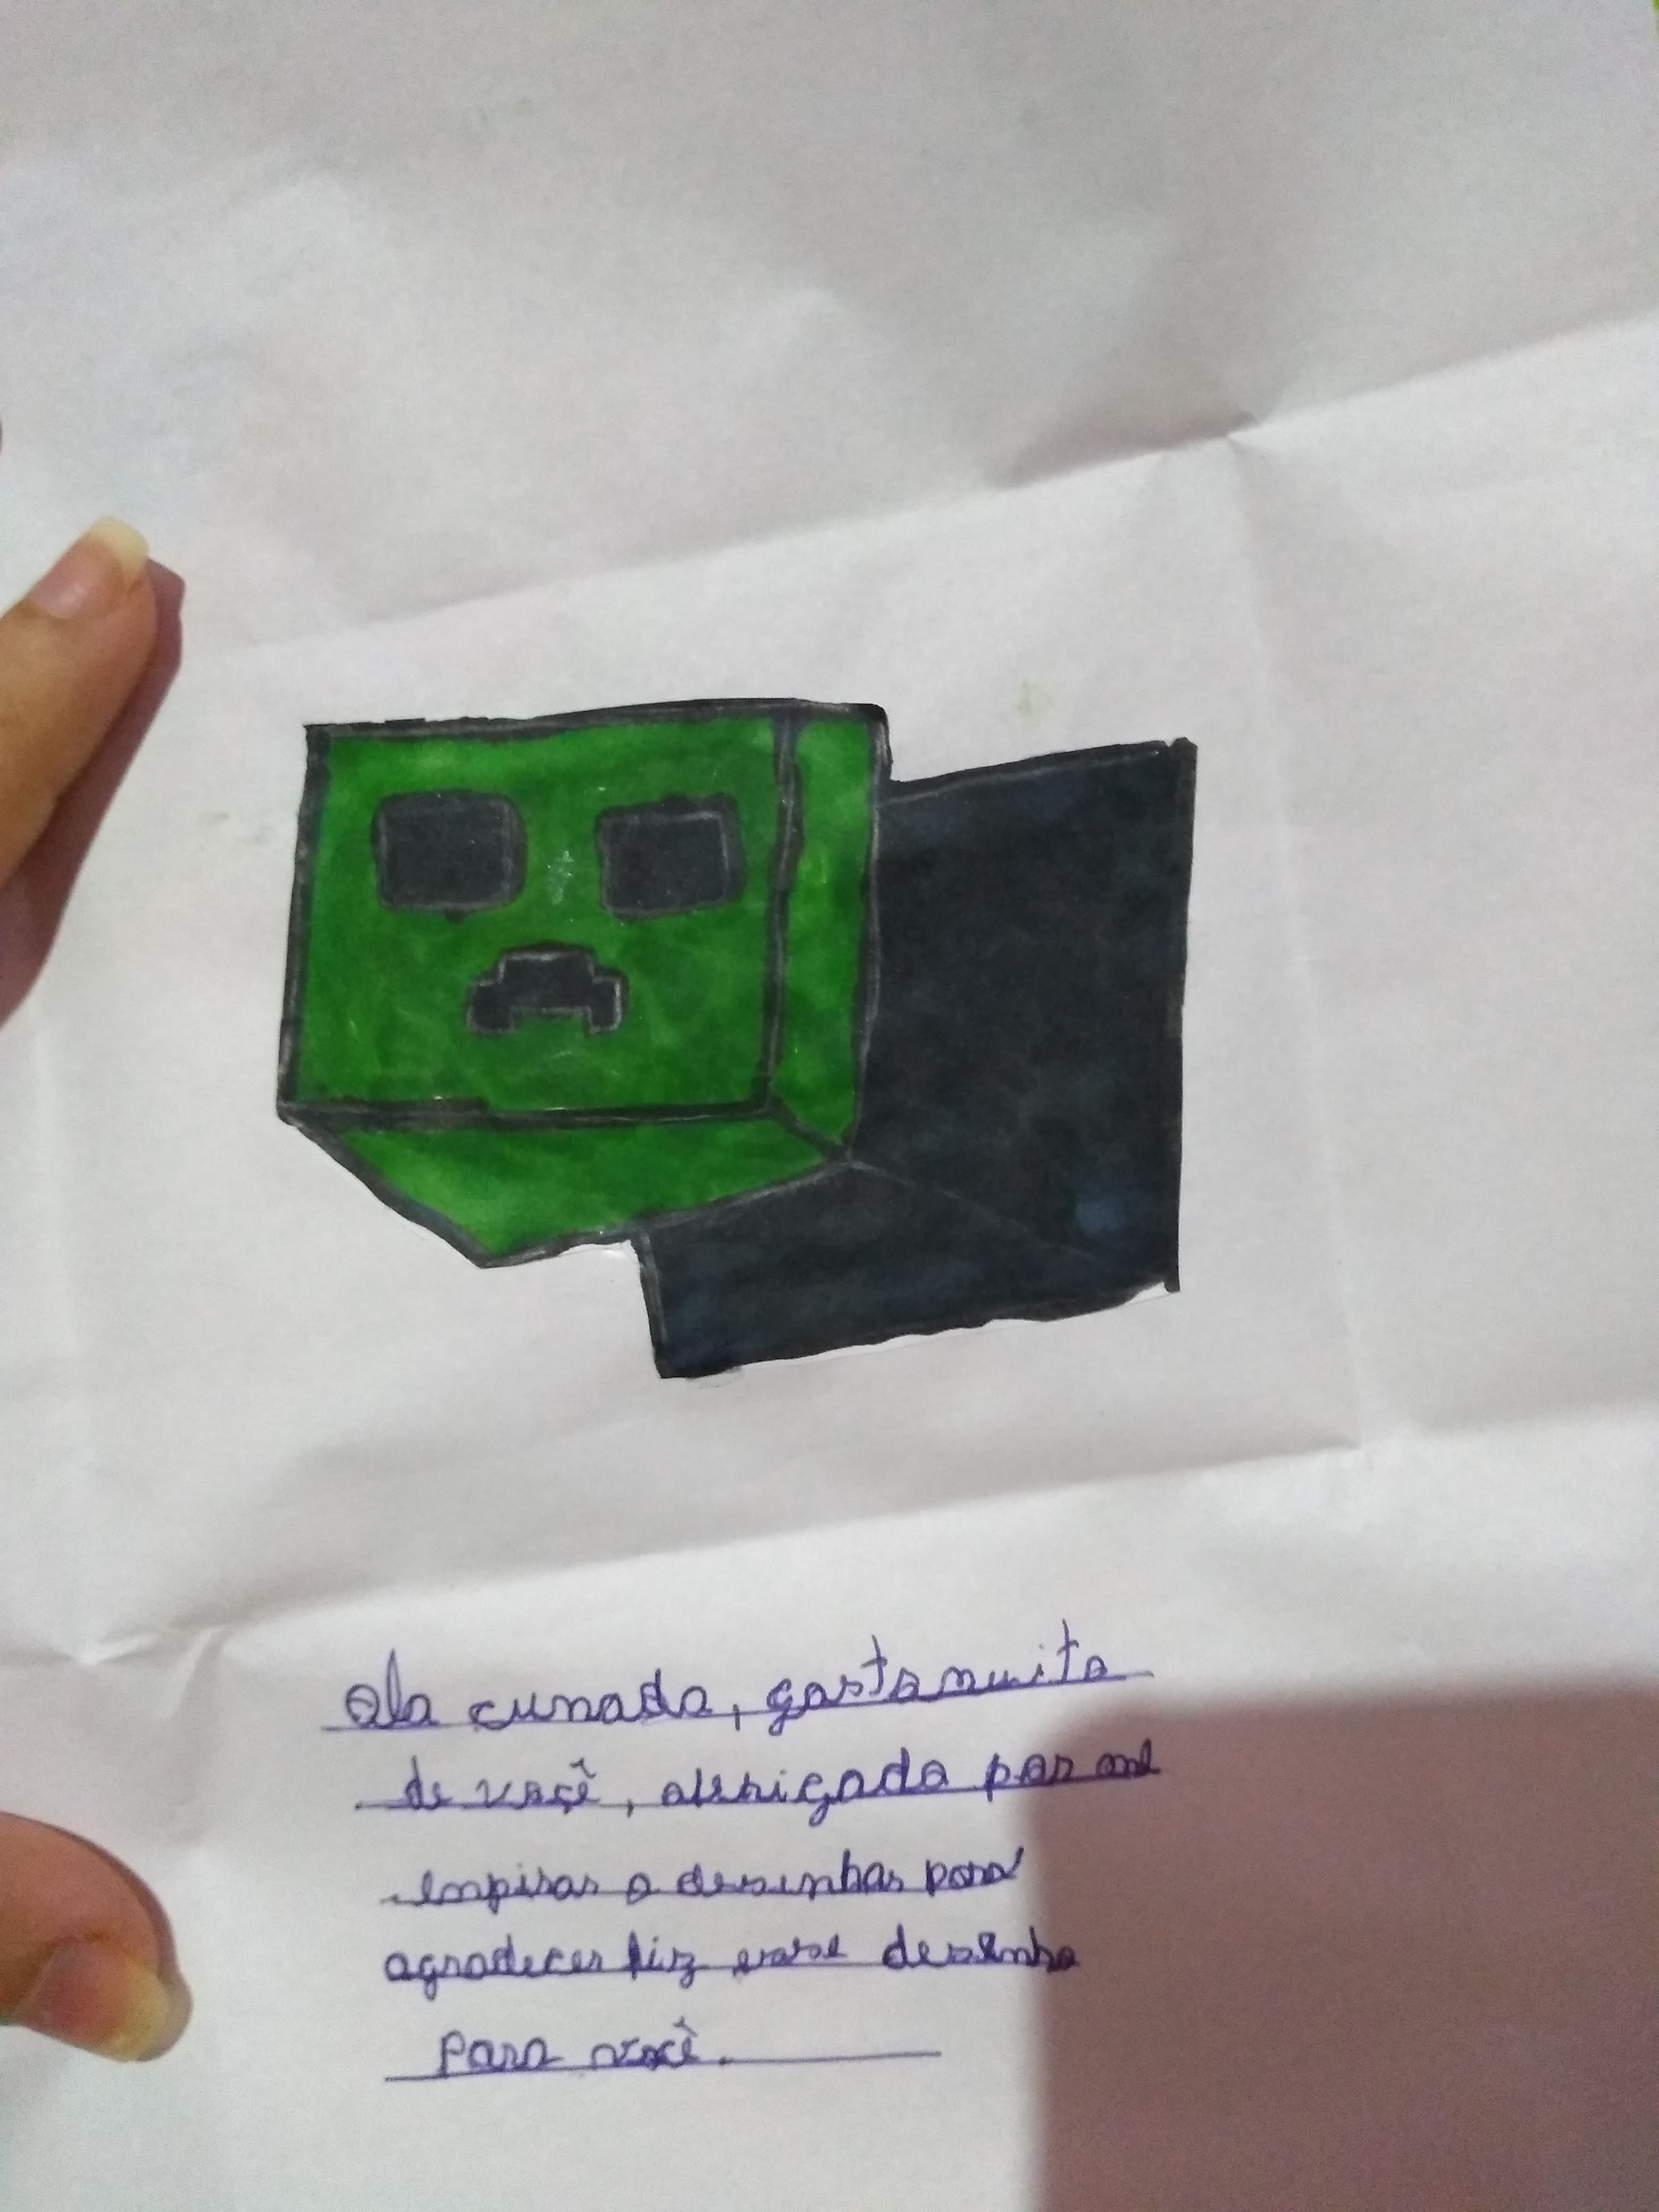 Ola cunada, gosto muito
de voçê, obrigada por me
inspirar a desenhar para
agradecer fiz esse desenho
para você.